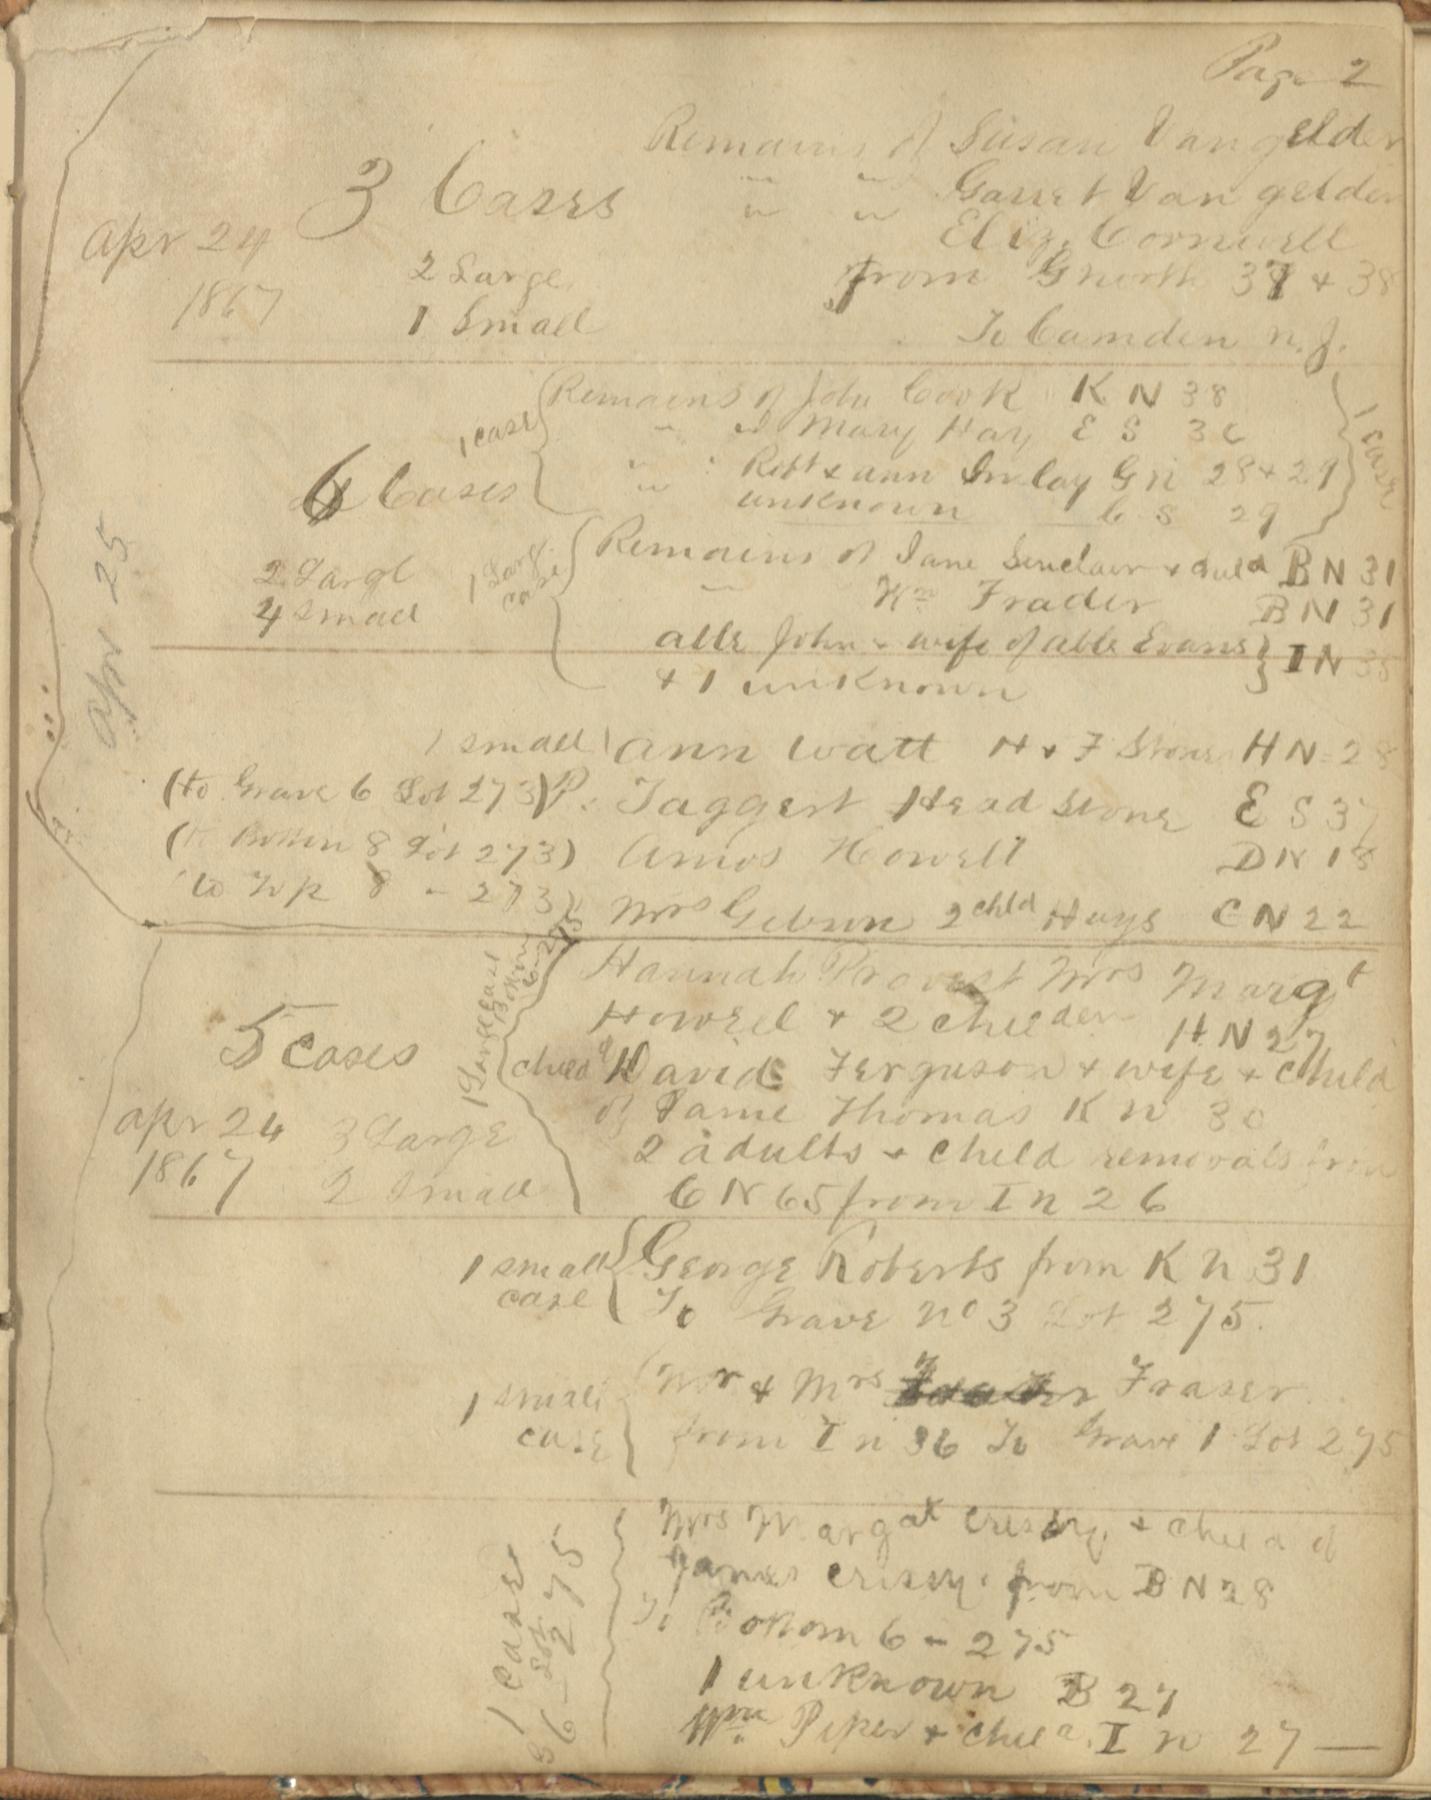 Page 2
Remains of Susan Vangelder
3 Cases " " Garret Van gelder
Apr 24 " " Eliz. Cornwell
2 Large from G north 37 & 38
1867 1 Small To Camden N. J.
1 case Remains of John Cook K N 38 1 case
" of Mary Hay E S 36
6 Cases " " Robt & ann Inlay G N 28 & 29
" unknown C S 29
Apr 25
2 Large 1 Large case Remains of Jane Sinclair & child B N 31
4 small " Wm Frader B N 31
able John & wife of able Evans } I N 35
& 1 unknown
1 small ann Watt H & F Stone H N 28
(to Grave 6 Lot 273) P. Taggert Head Stone E S 37
(to Bottom 8 Lot 273) Amos Howell D N 18
to Top 8 - 273) Mrs Geburn 2 chld Hays C N 22
1 Large case Bottom 6-275
Hannah Provest Mrs Margt
Howell & 2 children H N 27
5 cases child of David Ferguson & wife & child
Apr 24 3 Large of Same Thomas K N 30
1867 2 adults & child removals from
2 Small 6 N 65 from I N 26
1 small case George Roberts from K N 31
To Grave No 3 Lot 275.
1 small case Mr & Mrs Fraser
from I N 36 To Grave 1 Lot 275
1 Case 6 - Lot 275
Mrs Margat Crissy & child of
James Crissy. from B N 28
To Bottom 6 - 275
1 unknown B 27
Wm Piper & child. I N 27 —